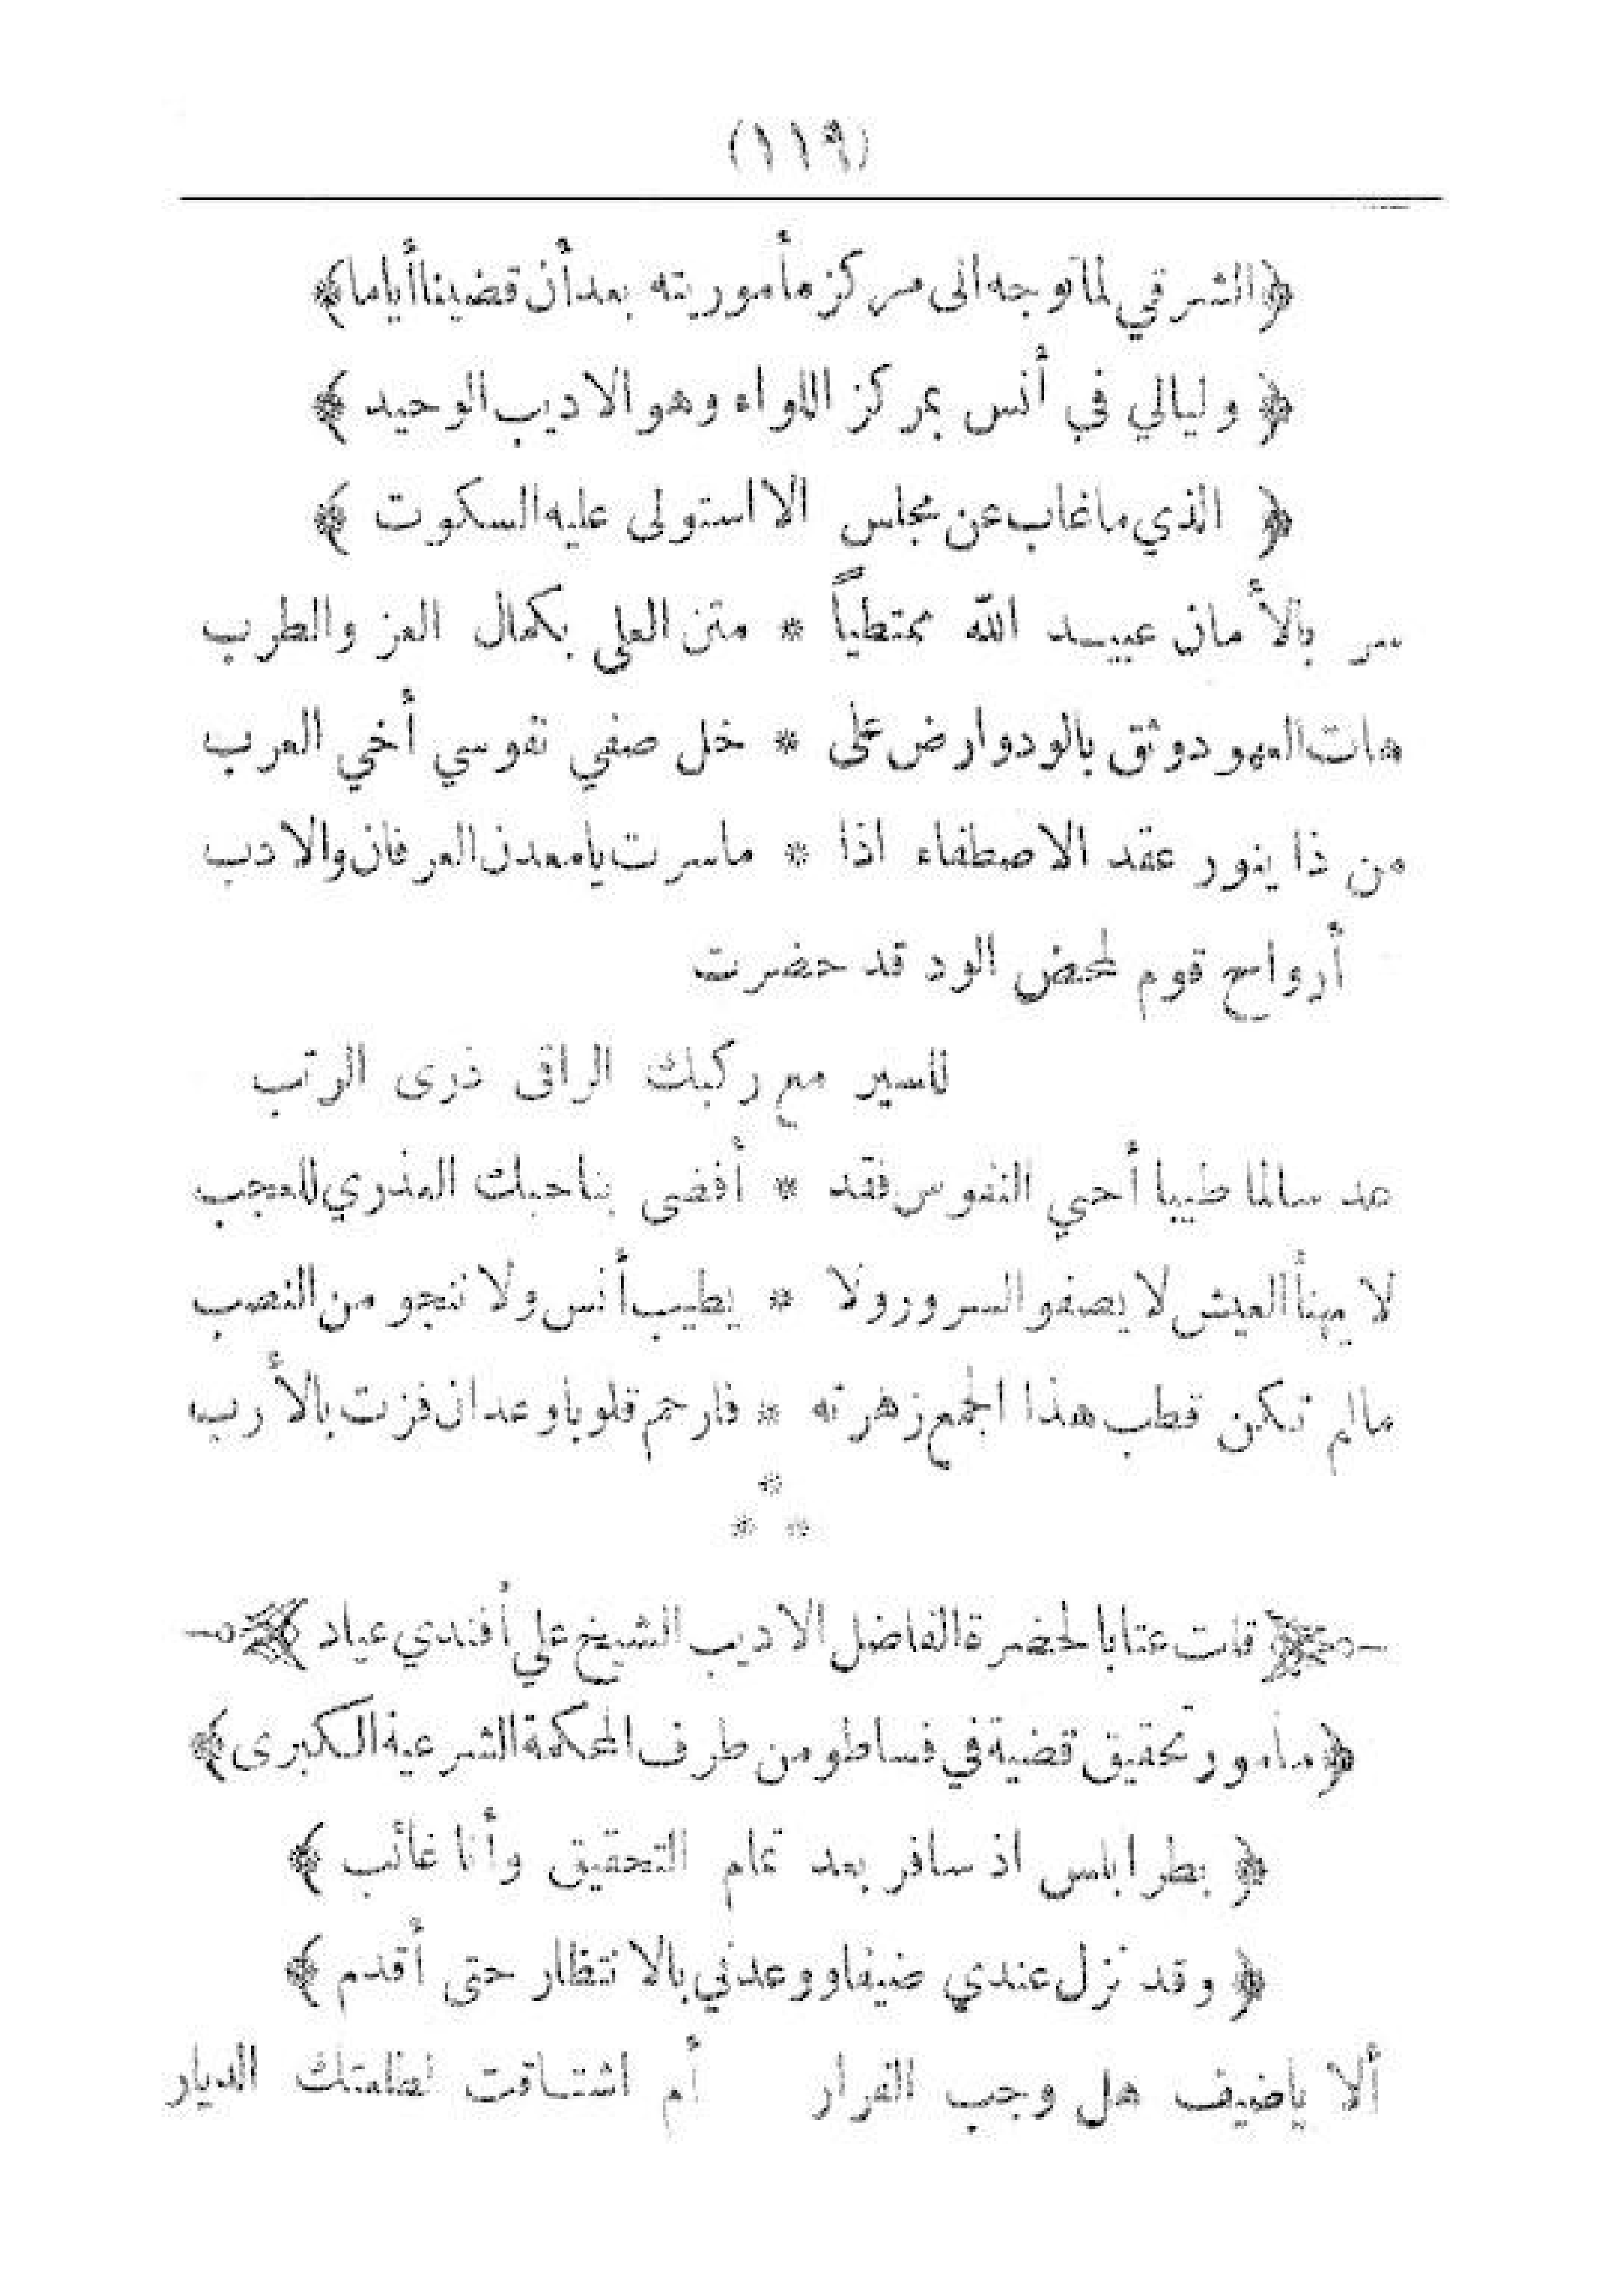 (١١٩)
﴿الشرقي لما توجه الى مركز مأموريته بعد أن قضينا أياما﴾
﴿ وليالي في أنس بمركز اللواء وهو الاديب الوحيد ﴾
﴿ الذي ما غاب عن مجلس الا استولى عليه السكوت ﴾
سر بالأمان عبيد الله ممتطياً * متن العلى بكمال العز والطرب
هات العهود وثق بالود وارض على * خل صفي نفوسي أخي العرب
من ذا ينور عقد الاصطفاء اذا * ما سرت يا معدن العرفان والادب
أرواح قوم لمحض الود قد حضرت
للسير مع ركبك الراقى ذرى الرتب
عد سالما طيبا أحي النفوس فقد * أفضى بنا حبك العذري للعجب
لا يهنأ العيش لا يصفو السرور ولا * يطيب أنس ولا ننجو من النصب
ما لم تكن قطب هذا الجمع زهرته * فارحم قلوبا وعد ان فزت بالأرب
*
* *
﴿ قلت عتابا لحضرة الفاضل الاديب الشيخ علي أفندي عياد ﴾
﴿مأمور تحقيق قضية في فساطو من طرف المحكمة الشرعية الكبرى﴾
﴿ بطرابلس اذ سافر بعد تمام التحقيق وأنا غائب ﴾
﴿ وقد نزل عندي ضيفا ووعدني بالانتظار حتى أقدم ﴾
ألا يا ضيف هل وجب الفرار أم اشتاقت لطلعتك الديار